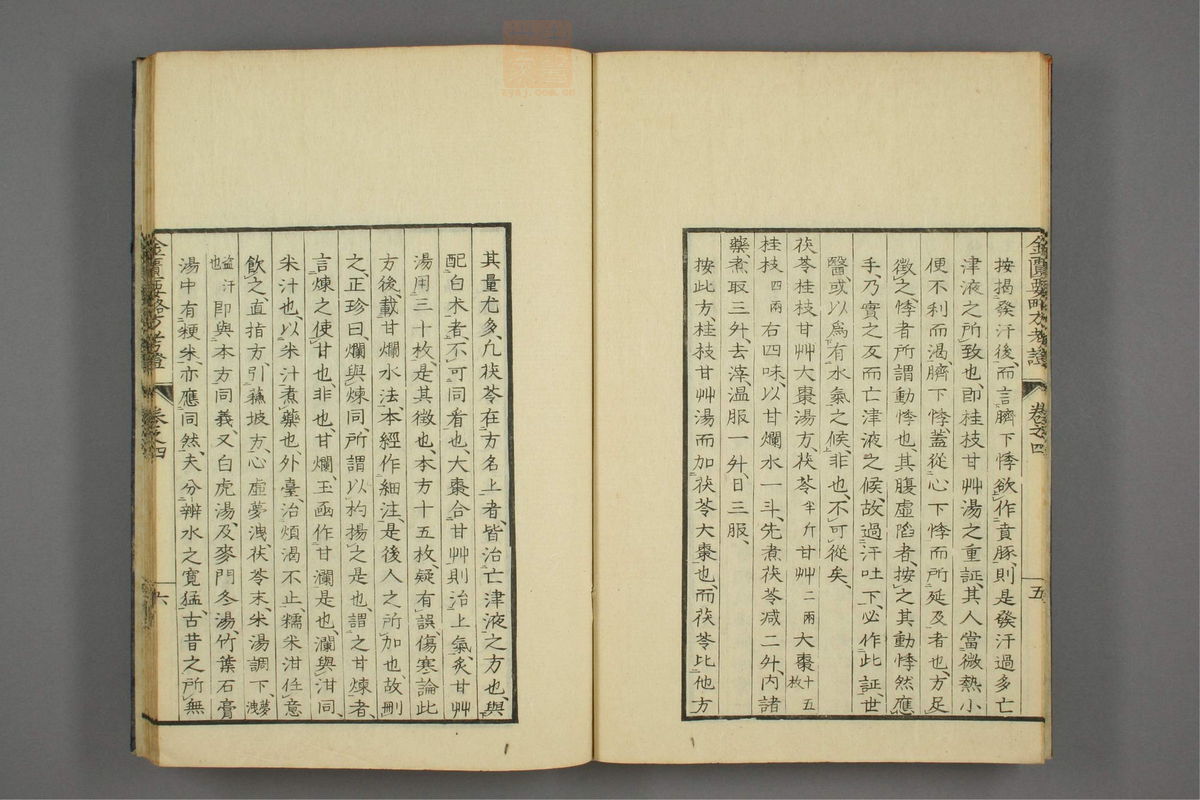 金匱要略方考證 卷之四 五
按揚發汗後而言臍下悸欲作賁豚則是發汗過多亡
津液之所致也即桂枝甘艸湯之重証其人當微熱小
便不利而渴臍下悸蓋從心下悸而所延及者也方足
徵之悸者所謂動悸也其腹虛陷者按之其動悸然應
手乃實之反而亡津液之候故過汗吐下必作此証世
醫或以為有水氣之候非也不可從矣
茯苓桂枝甘艸大棗湯方茯苓半斤甘艸二兩大棗十五枚
桂枝四兩右四味以甘爛水一斗先煮茯苓減二升內諸
藥煮取三升去滓溫服一升日三服
按此方桂枝甘艸湯而加茯苓大棗也而茯苓比他方
其量尤多凡茯苓在方名上者皆治亡津液之方也與
配白朮者不可同看也大棗合甘艸則治上氣炙甘艸
湯用三十枚是其徵也本方十五枚疑有誤傷寒論此
方後載甘爛水法本經作細注是後人之所加也故刪
之正珍曰爛與煉同所謂以杓揚之是也謂之甘煉者
言煉之使甘也非也甘爛玉函作甘瀾是也瀾與泔同
米汁也以米汁煮藥也外臺治煩渴不止糯米泔任意
飲之直指方引蘇坡方心虛夢洩茯苓末米湯調下夢洩
盜汗也即與本方同義又白虎湯及麥門冬湯竹葉石膏
湯中有粳米亦應同然夫分辨水之寬猛古昔之所無
金匱要略方考證 卷之四 六